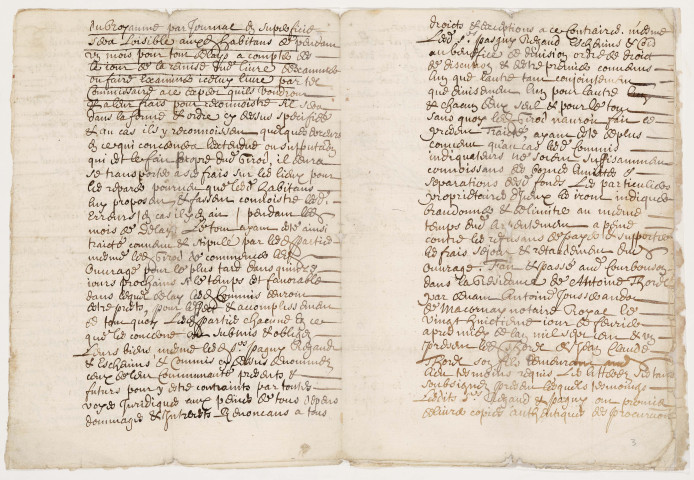 par Journal en superficie
sera Loisible aux habitans de pendant
un mois pour tout delays a compter de
le jour de la remise dud livre d'examiner
ou faire examiner iceluy livre par tel
Commissaire a ce expert quils voudront
et a leur frais pour reconnoistre sil sera
dans la forme et ordre cy dessus specifiée
et au cas ils y reconnoissent quelques erreurs
en ce qui concerne l'estendue ou supputation
qui est le fait propre dud Girod, il sera
se transporter a ses frais sur les lieux pour
les reparer pourveu que lesd habitans
luy proposent et fassent connoistre lesd
erreurs en cas il y en ait pendant led
mois de delays Le tout ayant esté ainsi
traicté convenu et stipulé par lesd parties
mesme led Girod de commencer led
Ouvrage pour le plus tard dans quinze
jours prochains si le temps est favorable
dans lequel delay les Commis devront
estre prests, pour l'effect et accomplissement
de tout quoy Lesd parties chacune en ce
que les concerne ont submis et obligé
Leurs biens mesme led Srs pagny Regaud
et Eschevins et Commis cy devant denommez
ceux de leur Communauté presents et
futurs pour y estre contraints par toutes
voyes Juridiques aux peines de tous depens
dommages et Interests Renonceans a tous
droicts et exceptions a ce Contraires. mesme
Lesd Srs pagny Regaud Eschevins et
au benefice de division ordre de droict
de discussion et estre premier convenus
l'un que l'autre tant conjointement
que divisement l'un pour l'autre
et chacun d'eux seul et pour le tout
sans quoy led Girod nauroit fait ce
present Traicté, ayant esté de plus
convenu quau cas lesd Commis
indiquateurs ne soient suffisamment
connoissans des bornes limites et
separations desd fonds Les particuliers
proprietaires d'iceux les iront indiquer
et au mesme
temps dud arpentement a peine
contre les refusans de payer et supporter
les frais sejour et retardement dud
Ouvrage. Fait et passé aud Courbouson
dans la Residance de Antoine
par devant Antoine
de Macornay notaire Royal le
vingt huictieme jour de febvrier
apres midy de l'an mil sept cent et un
presents led et Jean Claude
son fils demeurans
aud tesmoins requis Led
soubsignez presens lesquels tesmoings
Lesdits Srs Regaud et pagny ont promis
delivrer copies authentiques des procurations
3